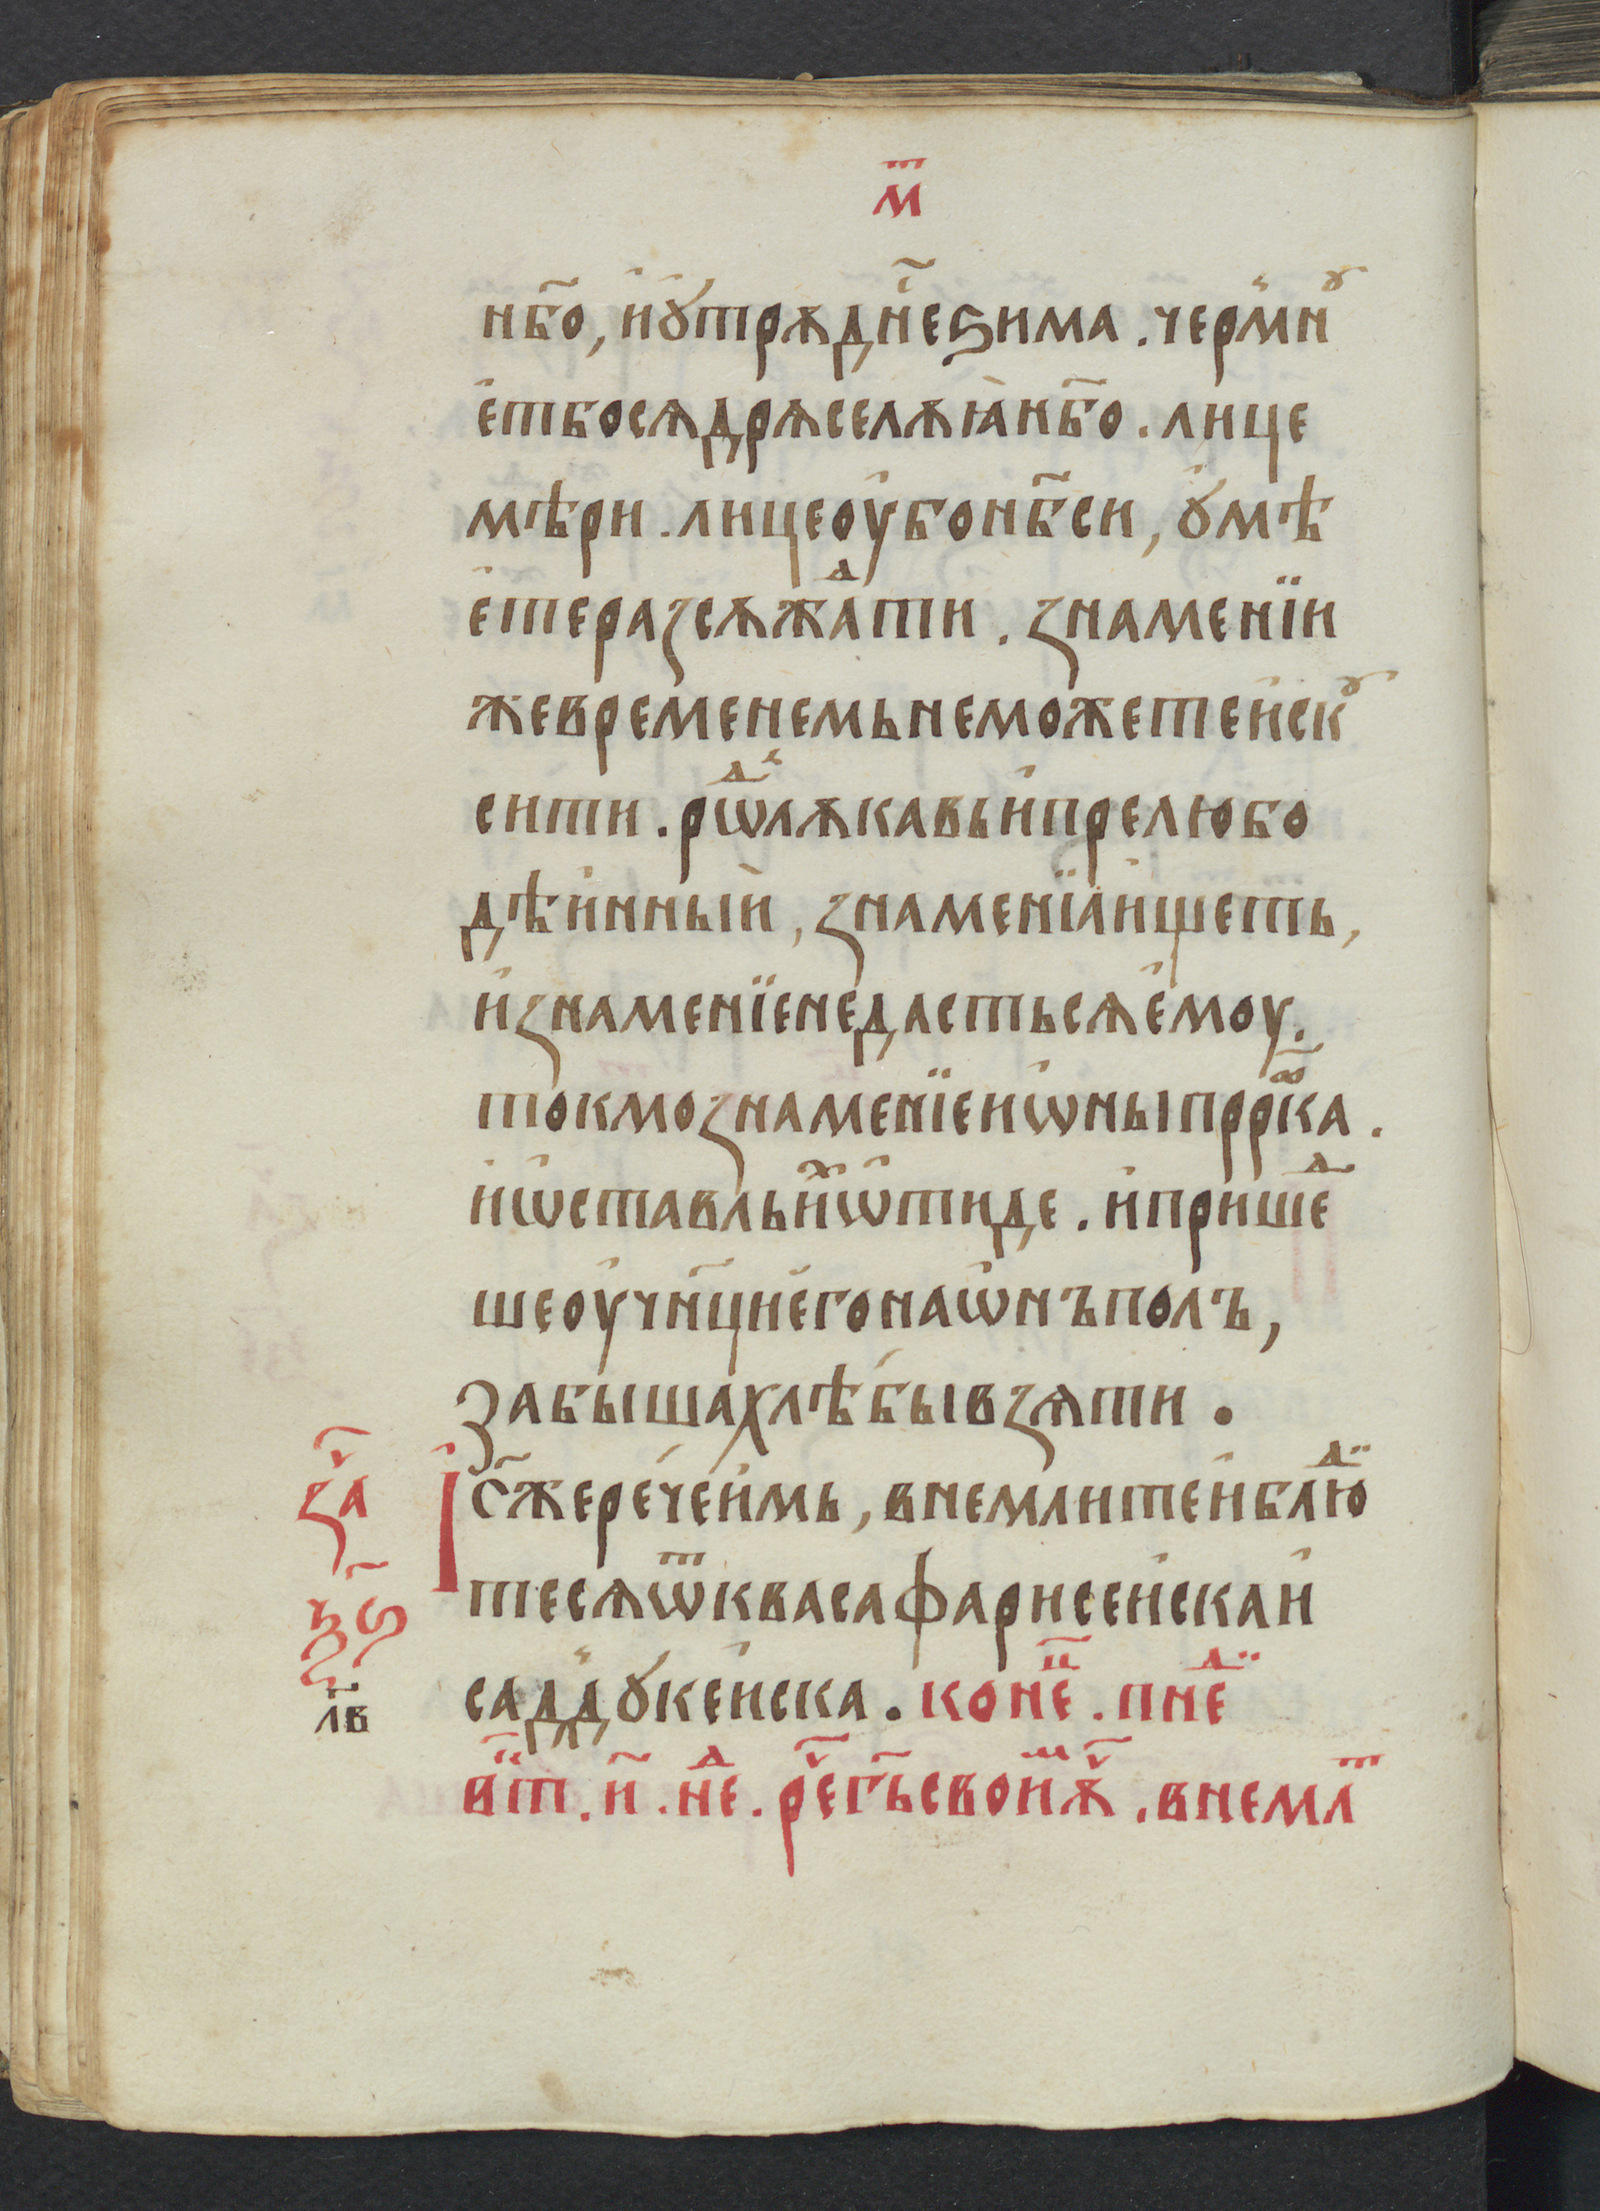 м҃т
нб҃о, иꙋтрѫдн҃еѕима. чермнꙋ
етбосѧдрѧселѫꙗнб҃о. лице
мѣри. лицеоубонб҃си, ꙋмѣ
етеразсѫжⷣати. знаменїи
жевременемьнеможетеискꙋ
сити. рѡⷣлѫкавьипрелюбо
дѣинныи, знаменїаищеть,
изнаменїенедастьсѧемоу.
токмознаменїеиѡныпррⷪ҇ка.
иѡставльиⷯѡтиде. ипришеⷣ
шеоучн҃циегонаѡнъполъ,
забышахлѣбывзѧти.
за҃ч
Іс҃жеречеимь, внемлитеиблюⷣ
тесѧѿквасафарисеискаи
ѯ҃ѕ
л҃в
саддꙋкеиска. конеⷰ. пнеⷣ
вⷮ. и҃. неⷣ. рече҃гьсвоиⷨѫч҃. внемлⷮ